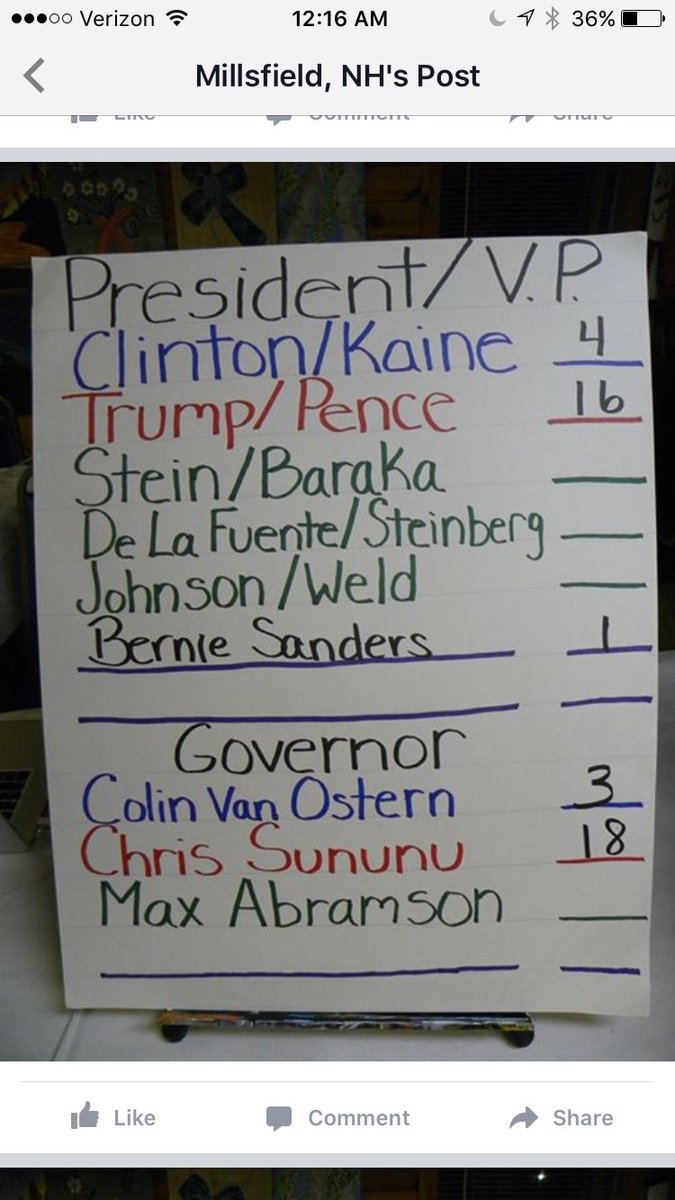 ●●●○○ Verizon 12:16 AM 36%
Millsfield, NH's Post
Like Comment Share
President/V.P.
Clinton/Kaine 4
Trump/Pence 16
Stein/Baraka —
De La Fuente/Steinberg —
Johnson/Weld —
Bernie Sanders 1
Governor
Colin Van Ostern 3
Chris Sununu 18
Max Abramson —
Like Comment Share